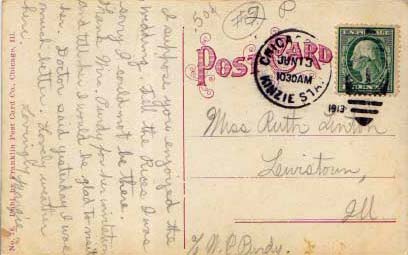 50¢
POST CARD
CHICAGO
JUN 13
1030AM
KINZIE STA.
1913
I suppose you enjoyed the
wedding. Tell the Rices I was
sorry I could not be there.
Thank Mrs. Purdy for her invitation
and tell her I would be glad to visit
her. Doctor said yesterday I was
much better. Lovely weather
here. Lovingly
Miss Ruth Linton
Lewistown,
Ill.
Franklin Post Card Co., Chicago, Ill.